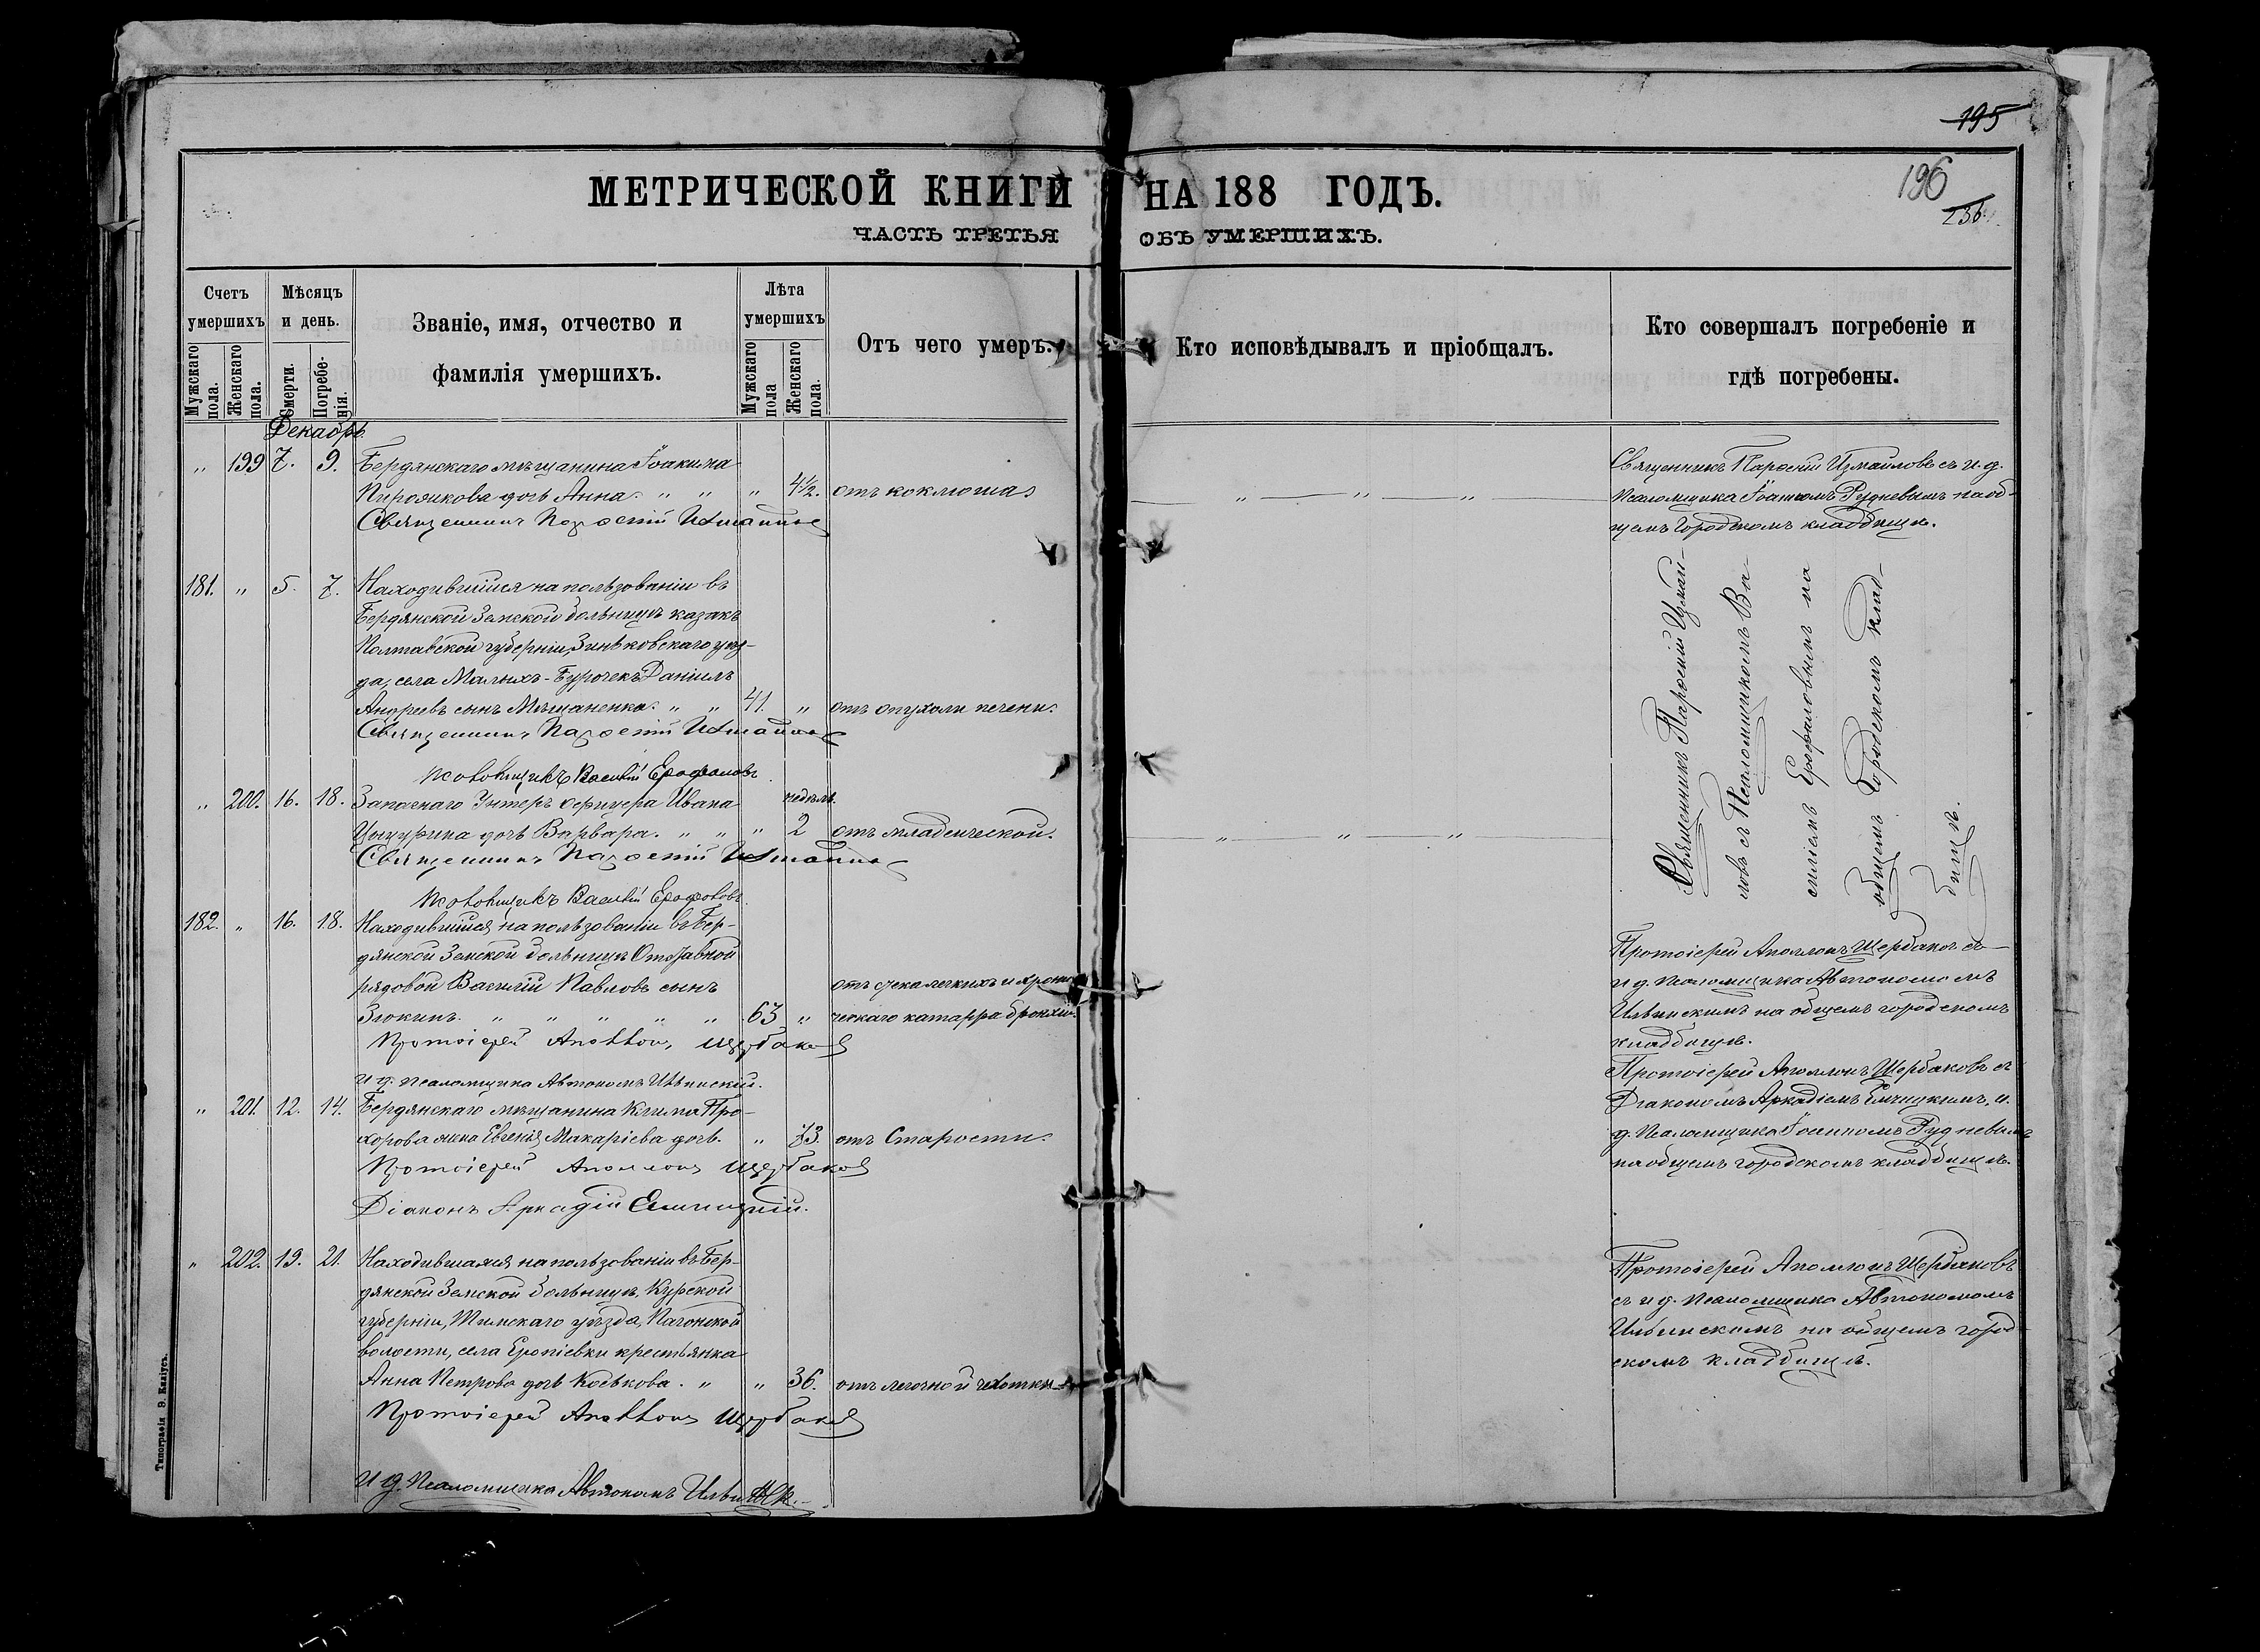 195
196
236.
МЕТРИЧЕСКОЙ КНИГИ НА 188 ГОДЪ.
ЧАСТЬ ТРЕТЬЯ ОБЪ УМЕРШИХЪ.
Счетъ умершихъ
Мужскаго пола.
Женскаго пола.
Мѣсяцъ и день.
Смерти.
Погребенія.
Званіе, имя, отчество и фамилія умершихъ.
Лѣта умершихъ
Мужскаго пола
Женскаго пола.
Отъ чего умеръ.
Кто исповѣдывалъ и пріобщалъ.
Кто совершалъ погребеніе и
гдѣ погребены.
Декабрь.
„ 199 7. 9. Бердянскаго мѣщанина Іоакима
дочь Анна. „ „ „ 4½. отъ коклюша
Священникъ Парѳеній Измаиловъ
Священникъ Парѳеній Измаиловъ съ и. д.
Псаломщика Іоанномъ Рудневымъ на об-
щемъ Городскомъ кладбищѣ.
181. „ 5. 7. Находившійся на пользованіи въ
Бердянской Земской больницѣ казакъ
Полтавской губерніи, Зиньковскаго уѣз-
да, села Малыхъ-Будочекъ Даніилъ
Андреевъ сынъ Мѣщаненко. „ „ 41. „ отъ опухоли печени.
Священникъ Парѳеній Измаиловъ
Псаломщикъ Василій Ерофаловъ
Священникъ Парѳеній Измаи-
ловъ съ Псаломщикомъ Ва-
силіемъ Ерофаловымъ на
общемъ Городскомъ клад-
бищѣ.
„ 200. 16. 18. Запаснаго Унтеръ офицера Ивана недѣль.
дочь Варвара. „ „ „ 2 отъ младенческой.
Священникъ Парѳеній Измаиловъ
Псаломщикъ Василій Ерофаловъ
182. „ 16. 18. Находившійся на пользованіи въ Бер-
дянской Земской больницѣ Отставной
рядовой Василій Павловъ сынъ отъ отека легкихъ и хрони-
Злокинъ. „ „ „ „ „ 63 „ ческаго катарра бронхій.
Протоіерей Аполлонъ Щербаковъ
И д. псаломщика Автономъ Ильинскій.
Протоіерей Аполлонъ Щербаковъ съ
и д. Псаломщика Автономомъ
Ильинскимъ на общемъ городскомъ
кладбищѣ.
„ 201. 12. 14. Бердянскаго мѣщанина Клима Про-
хорова жена Евгенія Макаріева дочь. „ 73. отъ Старости.
Протоіерей Аполлонъ Щербаковъ
Діаконъ Аркадій
Протоіерей Аполлонъ Щербаковъ съ
Діакономъ Аркадіемъ и.
д. Псаломщика Іоанномъ Рудневымъ
на общемъ городскомъ кладбищѣ.
„ 202. 19. 21. Находившаяся на пользованіи въ Бер-
дянской Земской больницѣ, Курской
губерніи, Тимскаго уѣзда,
волости, села крестьянка
Анна Петрова дочь Коськова. „ „ 36. отъ легочной чахотки
Протоіерей Аполлонъ Щербаковъ
И д. Псаломщика Автономъ Ильинск.
Протоіерей Аполлонъ Щербаковъ
съ и д. Псаломщика Автономомъ
Ильинскомъ на общемъ город-
скомъ кладбищѣ.
Типографія Э. Килiусъ.